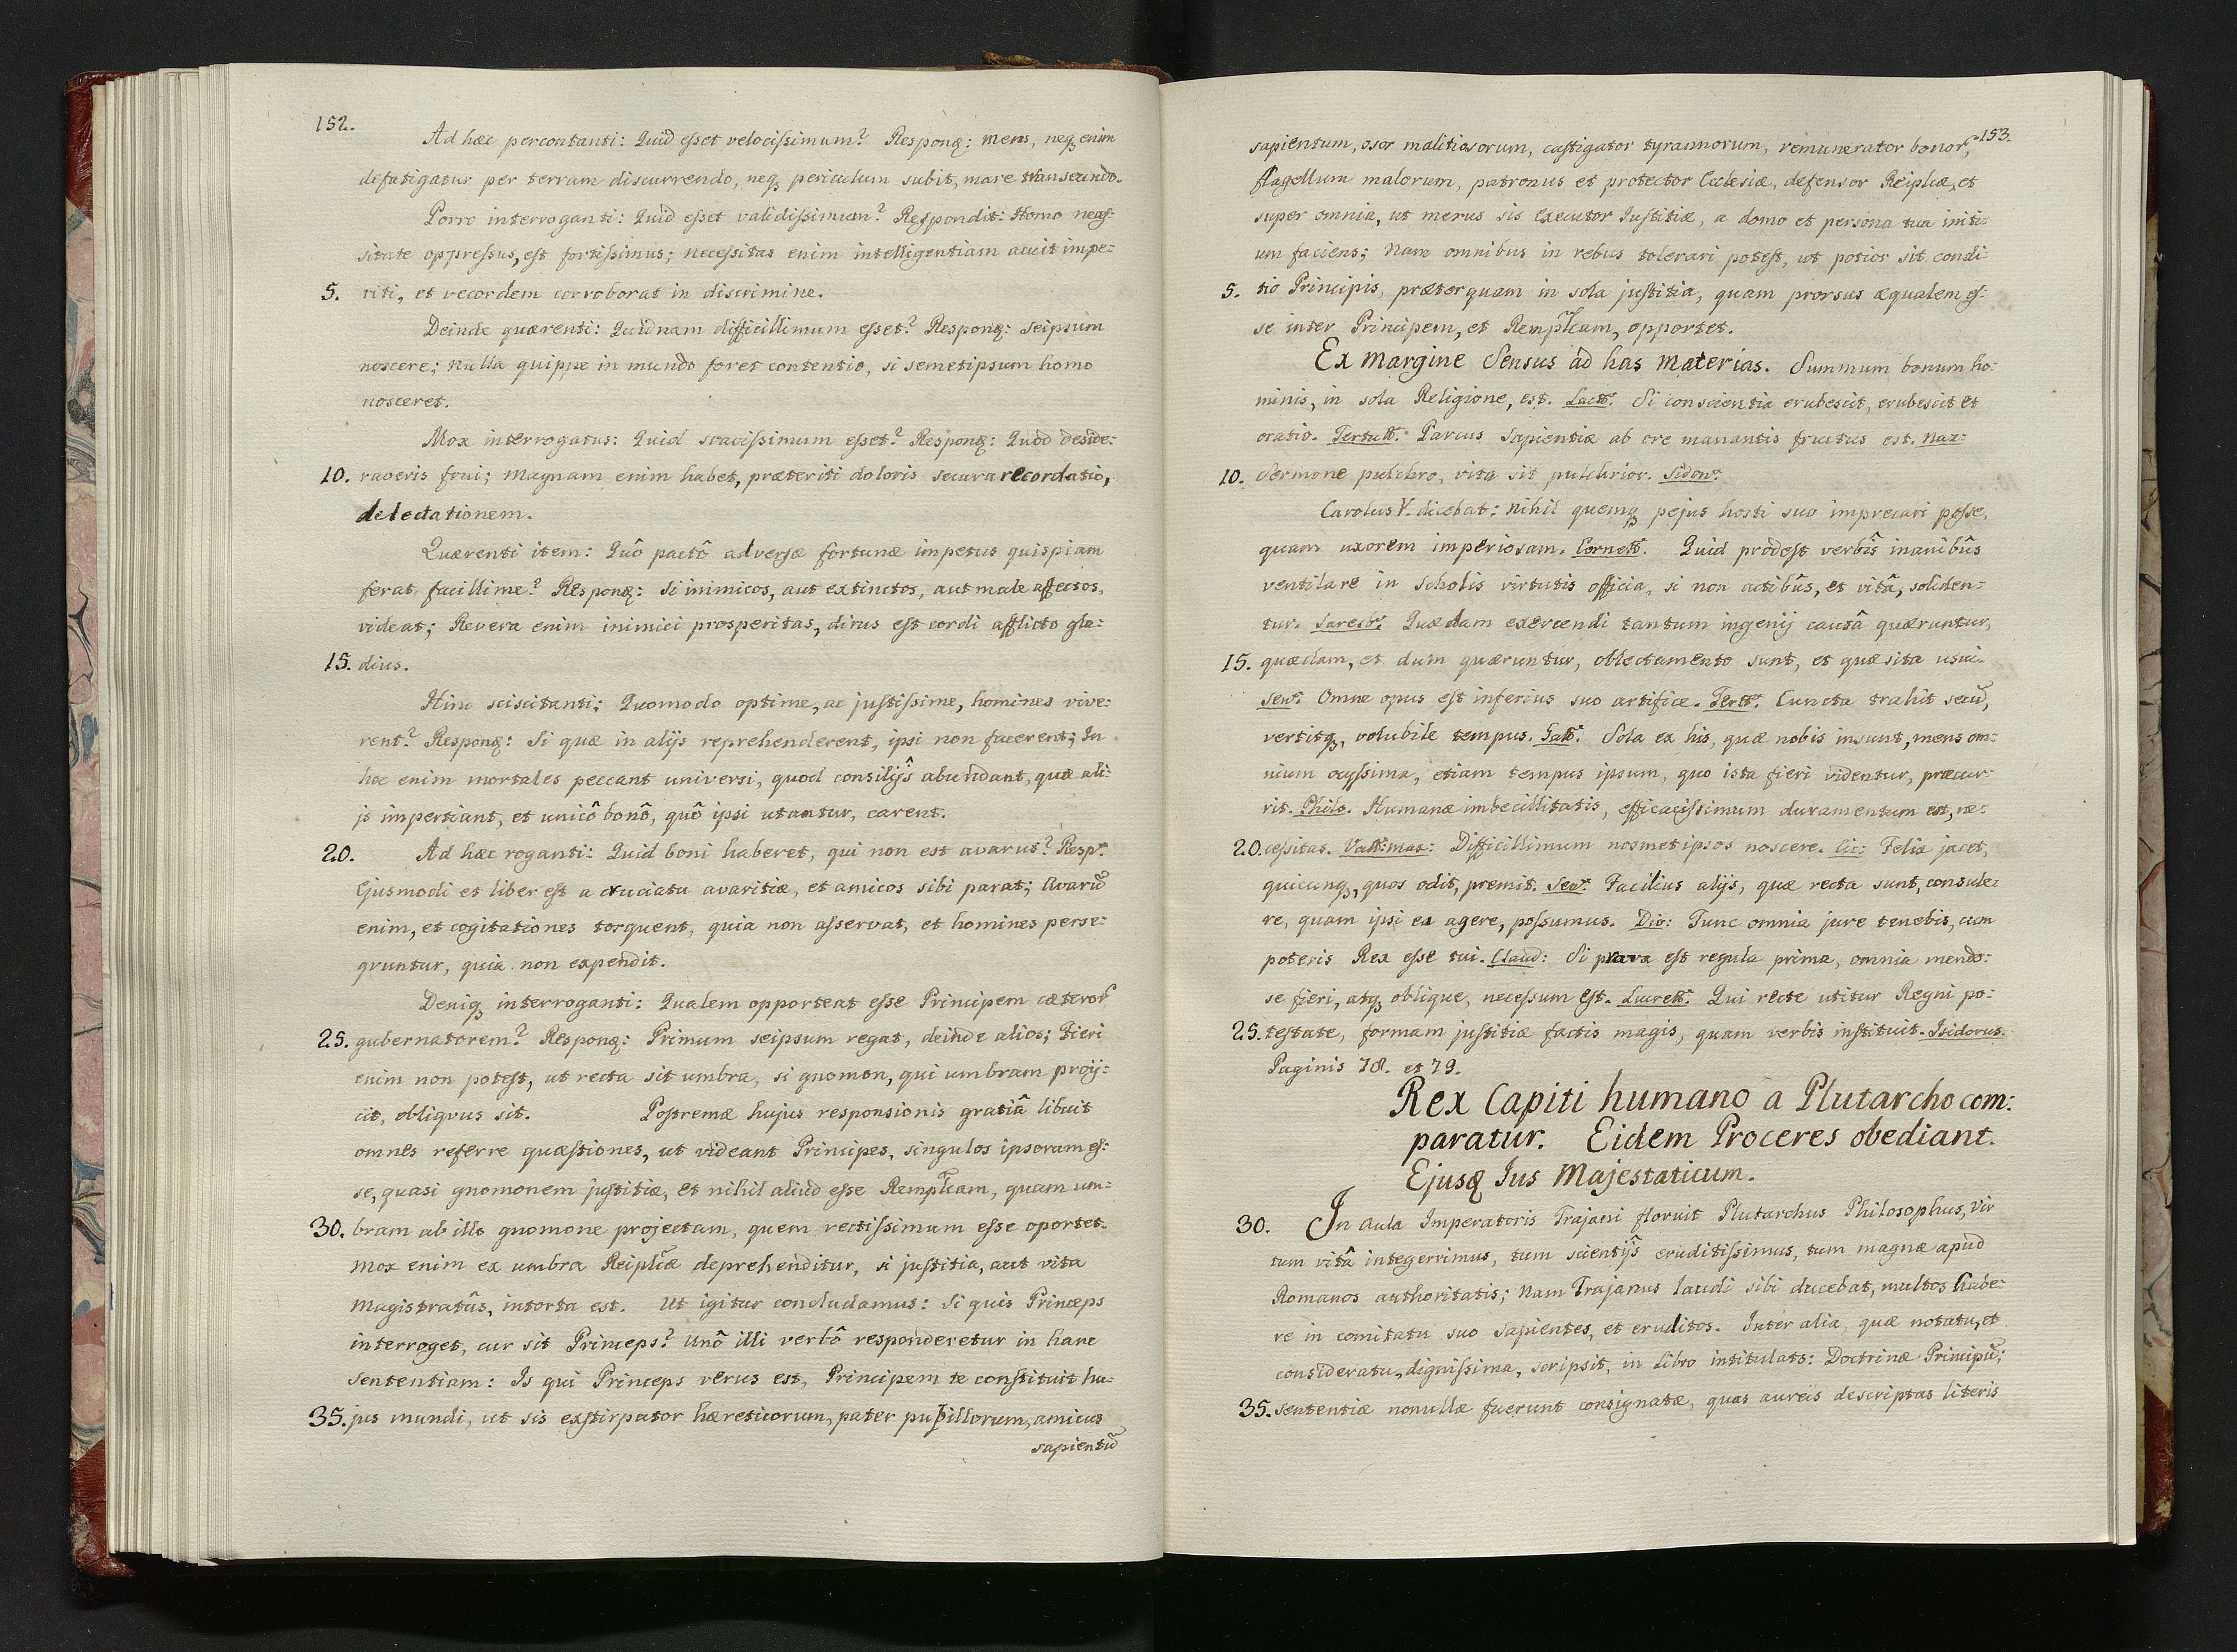 152.
Ad hæc percontanti: Quid esset velocissimum? Responq: Mens, neq enim
defatigatur per terram discurrendo, neq periculum subit, mare transeundo.
Porro interroganti: Quid esset validissimum? Respondit: Homo neces-
sitate oppressus, est fortissimus; Necessitas enim intelligentiam acuit impe:
5. riti, et vecordem corroborat in discrimine.
Deinde quærenti: Quidnam difficillimum esset? Responq: Seipsum
noscere; Nulla quippe in mundo foret contentio, si semetipsum homo
nosceret.
Mox interrogatus: Quid suavissimum esset? Responq: Quod deside:
10. raveris frui; Magnam enim habet, præteriti doloris secura recordatio,
delectationem.
Quærenti item: Quô pactô adversæ fortunæ impetus quispiam
ferat facillime? Responq: Si inimicos, aut extinctos, aut male affectos,
videat; Revera enim inimici prosperitas, dirus est cordi afflicto gla:
15. dius.
Hinc sciscitanti: Quomodo optime, ac justissime, homines vive:
rent? Responq: Si quæ in alijs reprehenderent, ipsi non facerent; In
hoc enim mortales peccant universi, quod consilijs̑ abundant, quæ ali:
js impertiant, et unicô bonô, quô ipsi utantur, carent.
20. Ad hæc roganti: Quid boni haberet, qui non est avarus? Resp.
Ejusmodi et liber est a cruciatu avaritiæ, et amicos sibi parat; Avarū
enim, et cogitationes torquent, quia non asservat, et homines perse:
quntur, quia non expendit.
Deniq interroganti: Qualem opporteat esse Principem cæteror
25. gubernatorem? Responq: Primum seipsum regat, deinde alios; Fieri
enim non potest, ut recta sit umbra, si gnomon, qui umbram proij:
cit, obliquus sit. Postremæ hujus responsionis gratiâ libuit
omnes referre quæstiones, ut videant Principes, singulos ipsorum es:
se, quasi gnomonem justitiæ, et nihil aliud esse Rempl̃cam, quam um:
30. bram ab illo gnomone projectam, quem rectissimum esse oportet.
Mox enim ex umbra Reipl̃cæ deprehenditur, si justitia, aut vita
Magistratûs, intorta est. Ut igitur concludamus: Si quis Princeps
interroget, cur sit Princeps? Unô illi verbô responderetur in hanc
sententiam: Is qui Princeps verus est, Principem te constituit hu:
35. jus mundi, ut sis exstirpator hæreticorum, pater pupillorum, amicus
sapientū
153.
sapientum, osor malitiosorum, castigator tyrannorum, remunerator bonor,
flagellum malorum, patronus et protector Ecclesiæ, defensor Reiplicæ, et
super omnia, ut merus sis executor Justitiæ, a domo et persona tua initi:
um faciens; Nam omnibus in rebus tolerari potest, ut potior sit condi:
5. tio Principis, præterquam in sola justitia, quam prorsus æqualem es:
se inter Principem, et Rempl̃cam, opportet.
Ex Margine Sensus ad has Materias. Summum bonum ho:
minis, in sola Religione, est. Lact. Si conscientia erubescit, erubescit et
oratio. Tertull. Parcus Sapientiæ ab ore manantis fructus est. Naz:
10. Sermone pulchro, vita sit pulchrior. Sidon.
Carolus V. dicebat: Nihil quemq pejus hosti suo imprecari posse,
quam uxorem imperiosam. Cornell. Quid prodest verbis̑ inanibûs
ventilare in Scholis virtutis officia, si non actibûs, et vitâ, soliden:
tur. Saresb. Quædam exercendi tantum ingenij causâ quæruntur,
15. quædam, et dum quæruntur, oblectamento sunt, et quæsita usui.
Sen. Omne opus est inferius suo artifice. Tert. Cuncta trahit secū,
vertitq, volubile tempus. Gall. Sola ex his, quæ nobis insunt, mens om:
nium ocyssima, etiam tempus ipsum, quo ista fieri videntur, præcur:
rit. Philo. Humanæ imbecillitatis, efficacissimum duramentum est, ne:
20. cessitas. Vall: Max: Difficillimum nosmetipsos noscere. Cic: Felix jacet,
quicunq, quos odit, premit. Sen. Facilius alijs, quæ recta sunt, consule:
re, quam ipsi ea agere, possumus. Dio: Tunc omnia jure tenebis, cum
poteris Rex esse tui. Claud: Si prava est regula prima, omnia mendo:
se fieri, atq oblique, necessum est. Lucrett. Qui recte utitur Regni po:
25. testate, formam justitiæ factis magis, quam verbis instituit. Isidorus.
Paginis 78. et 79.
Rex Capiti humano a Plutarcho com:
paratur. Eidem Proceres obediant.
Ejusq Ius Majestaticum.
30. In Aula Imperatoris Trajani floruit Plutarchus Philosophus, Vir
tum vitâ integerrimus, tum scientijs̑ eruditissimus, tum magnæ apud
Romanos authoritatis; Nam Trajanus laudi sibi ducebat, multos habe:
re in comitatu suo Sapientes, et eruditos. Inter alia, quæ notatu, et
consideratu, dignissima, scripsit, in Libro intitulato: Doctrinæ Principū;
35. sententiæ nonullæ fuerunt consignatæ, quas aureis descriptas literis